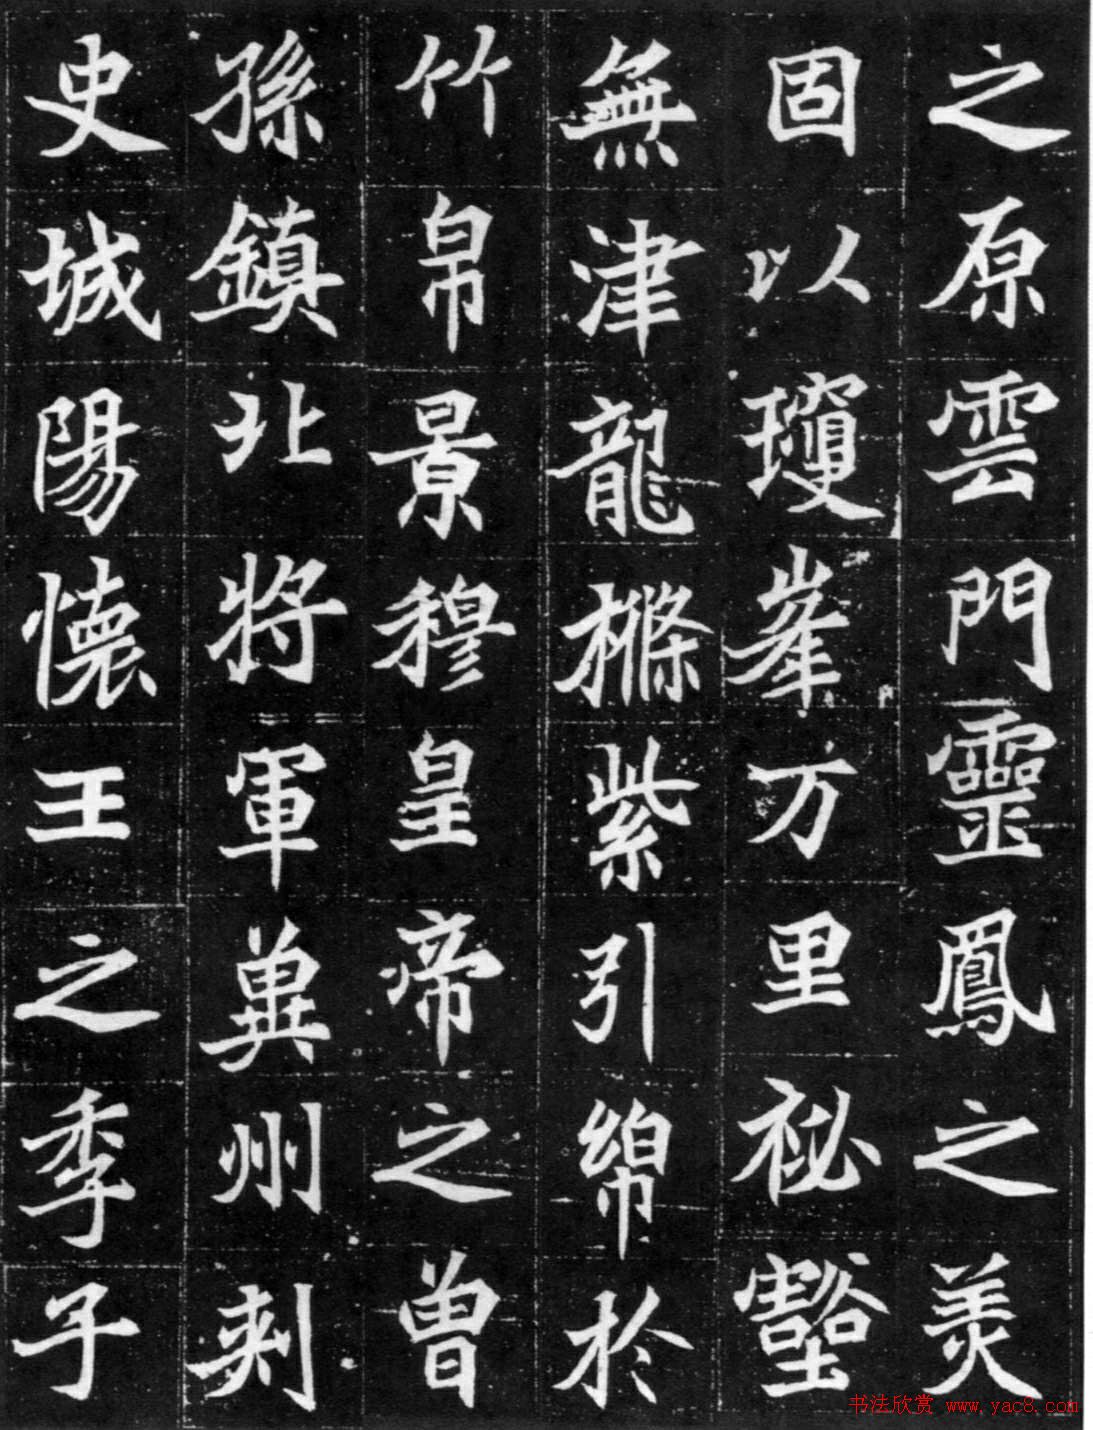 之原雲門靈鳳之美
固以瓊峯万里秘壑
無津龍樤紫引綿於
竹帛景穆皇帝之曾
孫鎮北將軍冀州刺
史城陽懷王之季子
书法欣赏 www.yac8.com